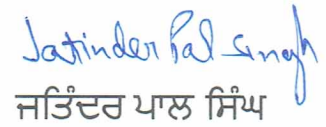 Jatinder Pal Singh
ਜਤਿੰਦਰ ਪਾਲ ਸਿੰਘ